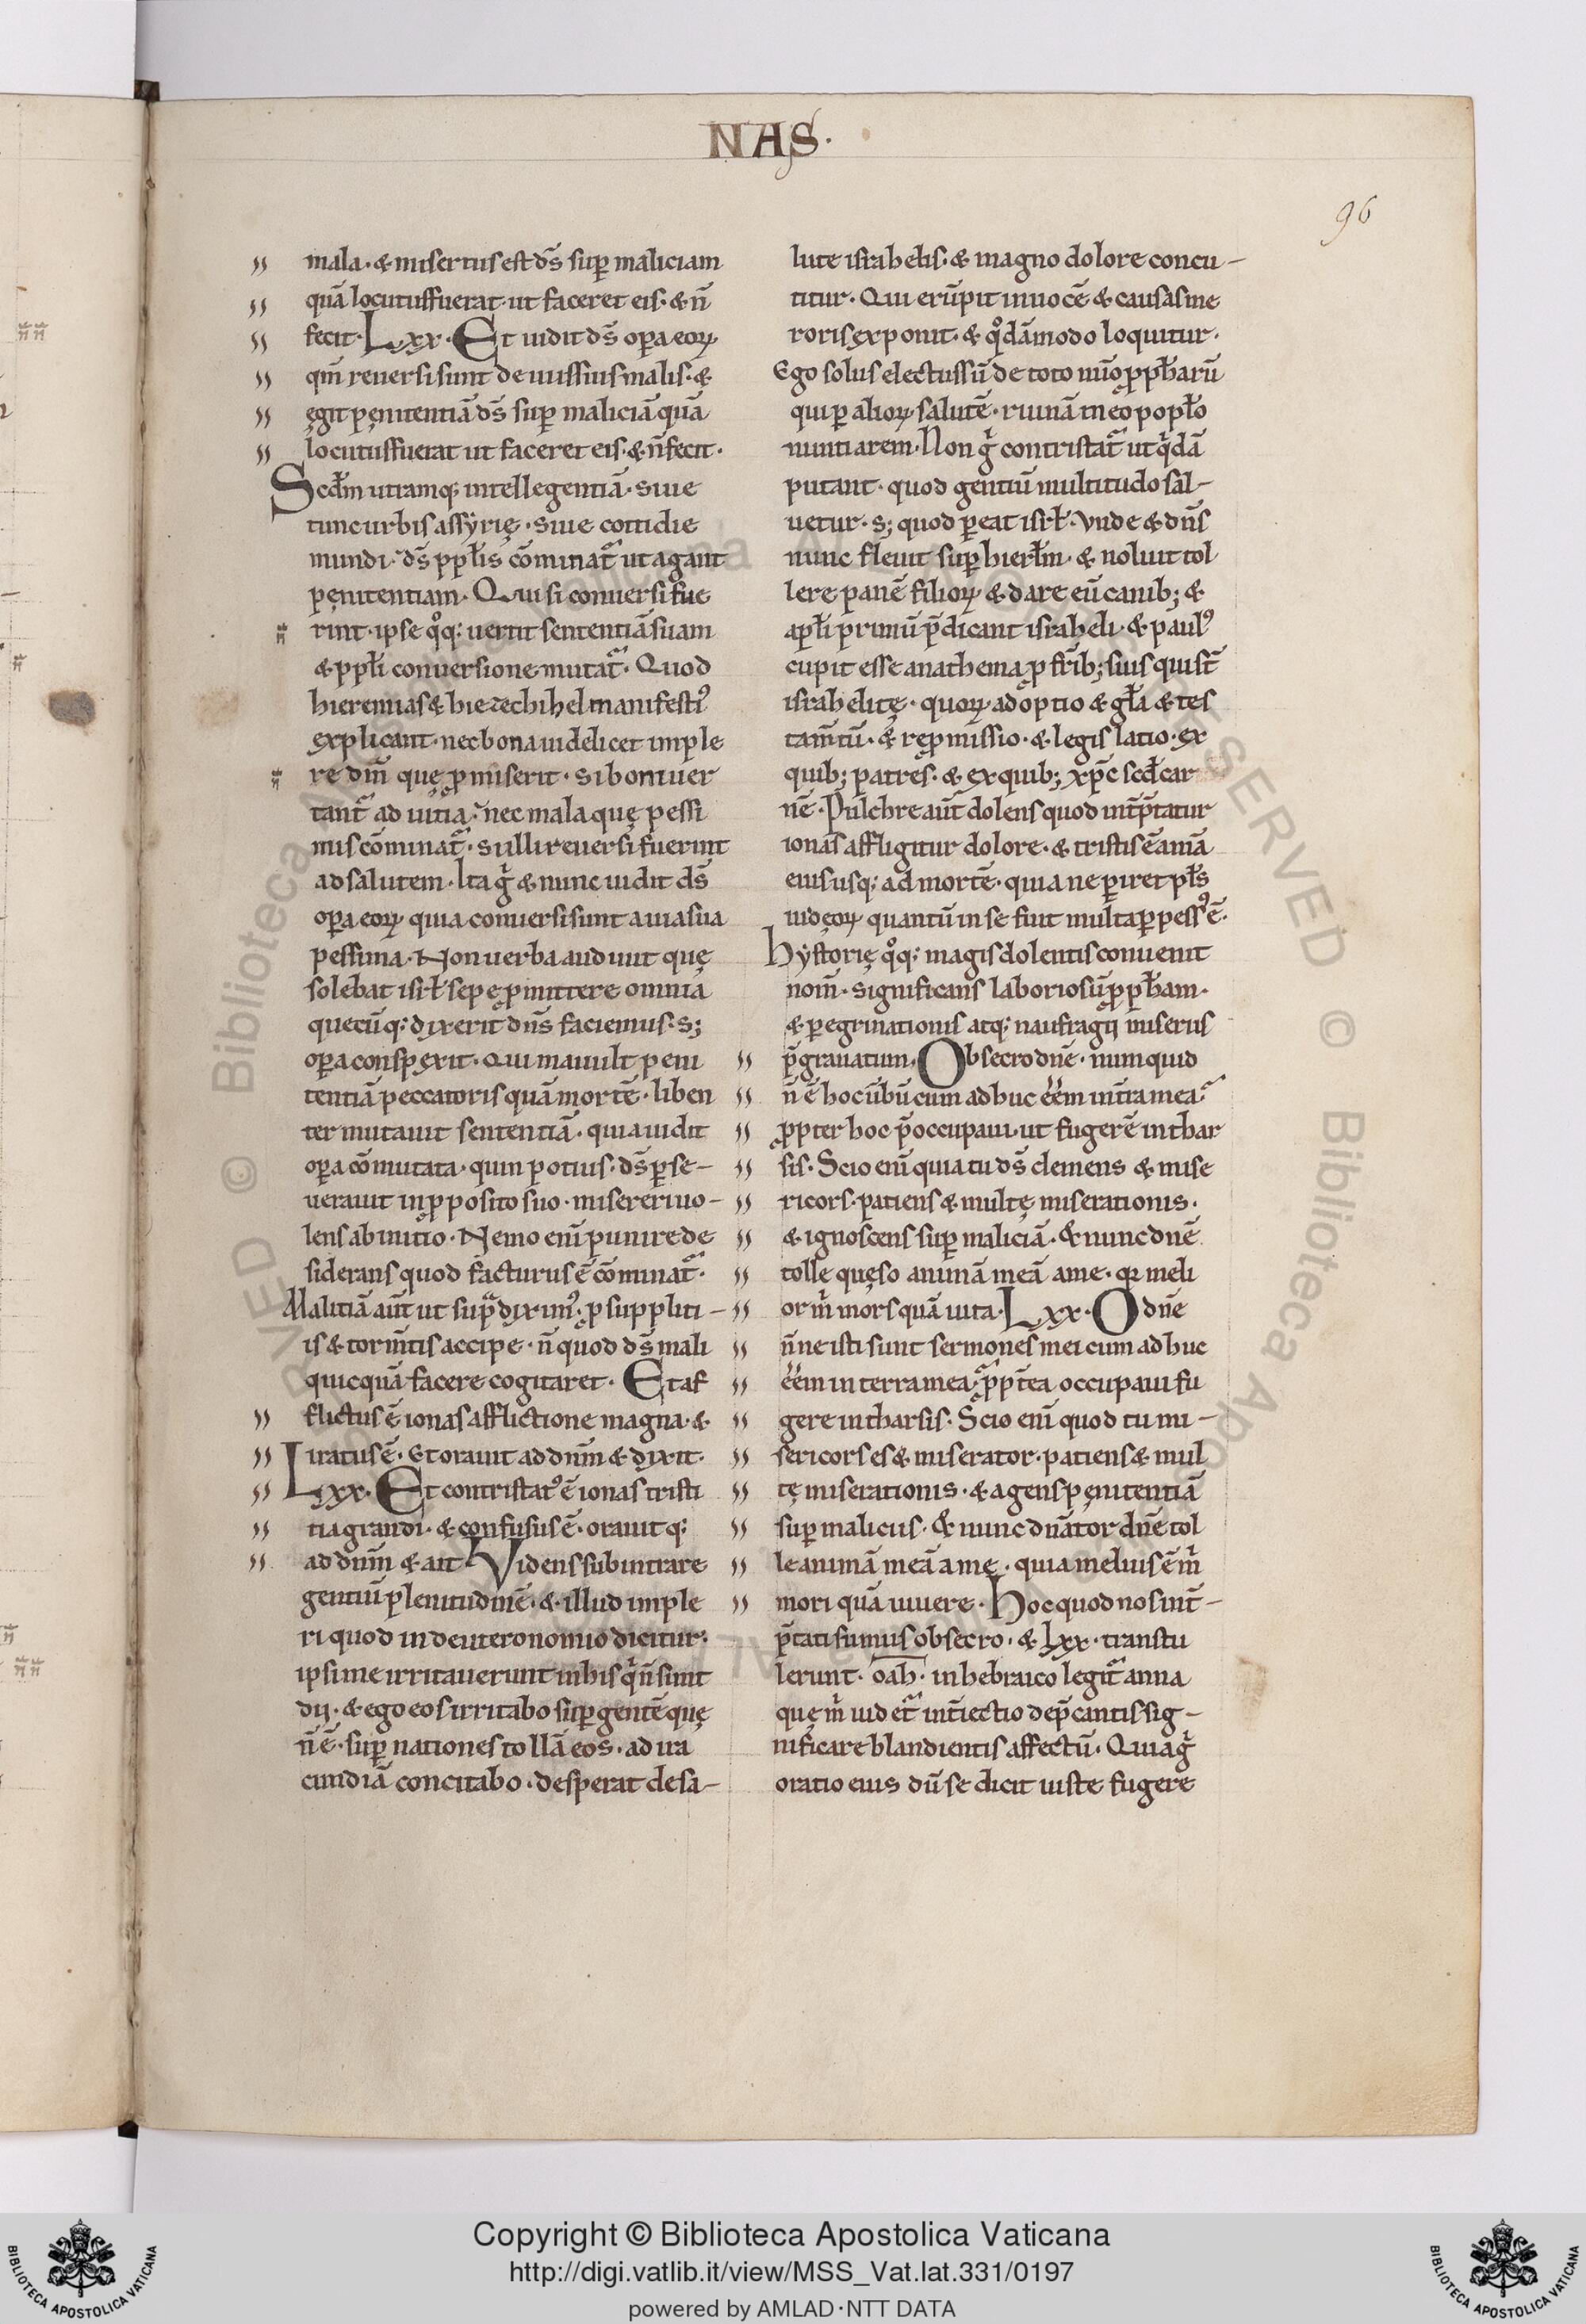 NAS·
96
mala· & misertus est ds̄ sup̱ maliciam
quā locutusfuerat ut faceret eis· & n̄
fecit· Lxx· Et uidit ds̄ op̱a eoꝝ
qm̄ reuersi sunt de uiis suis malis· &
ęgit pęnitentiā ds̄ sup̱ maliciā quā
locutusfuerat ut faceret eis· & n̄ fecit·
Scd̄m utramq; intellegentiā· siue
tunc urbis assẏrię· siue cottidie
mundi· ds̄ ppł̄is cōminat᷑ ut agant
pęnitentiam· Qui si conuersi fue
rint· ipse qͦq; uertit sententiā suam
& ppłi conuersione mutat᷑· Quod
hieremias & hiezechihel manifesti᷒
explicant· nec bona uidelicet imple
re dm̄ quę ꝓmiserit· si boni uer
tant᷑ ad uitia· nec mala quę pessi
mis cōminat᷑· si illi reuersi fuerint
ad salutem· Ita gͥ & nunc uidit ds̄
op̱a eoꝝ quia conuersi sunt a uia sua
pessima· Non uerba audiuit quę
solebat isrł sepe ꝓmittere omnia
quecūq; dixerit dn̄s faciemus· s;
op̱a conspexit· Qui mauult peni
tentiā peccatoris quā mortē· liben
ter mutauit sententiā· quia uidit
op̱a cōmutata· quin potius· ds̄ p̱se-
uerauit in ꝓposito suo· misereri uo-
lens ab initio· Nemo eni᷒ punire de
siderans quod facturus ē cōminat᷑·
Malitiā aūt ut supᷓ diximꝰ· ꝓ suppliti-
is & torm̄tis accipe· n̄ quod ds̄ mali
quicquā facere cogitaret· Et af
flictus ē ionas afflictione magna· &
iratus ē· Et orauit ad dnm̄ & dixit·
Lxx· Et contristatꝰ ē ionas tristi
tia grandi· & confusus ē· orauitq;
ad dnm̄ & ait· Videns subintrare
gentiū plenitudinē· & illud imple
ri quod in deuteronomio dicitur·
ipsi me irritauerunt in his qͥ n̄ sunt
dii· & ego eos irritabo sup̱ gentē quę
n̄ ē· sup̱ nationes tollā eos· ad ira
cundiā concitabo· desperat de sa-
lute israhelis· & magno dolore concu-
titur· Qui erūpit in uocē & causas me
roris exponit· & qͦdāmodo loquitur·
Ego solus electus sū de toto nūo ꝓpħarū
qui p̱ alioꝝ salutē· ruinā meo popło
nuntiarem· Non gͥ contristat᷑ ut qͥdā
putant· quod gentiū multitudo sal-
uetur· s; quod p̱eat isrł· Vnde & dn̄s
nunc fleuit sup̱ hierłm· & noluit tol
lere panē filioꝝ & dare eū canib; &
apłi primū p̄dicant israheli· & paulꝰ
cupit esse anathema ꝓ frīb; suis qui st̄
israhelitę· quoꝝ adoptio & gła & tes
tam̄tū· & reꝓmissio· & legis latio· ex
quib; patres· & ex quib; xp̄c scd̄ car
nē· Pulchre aūt dolens quod int̄p̄tatur
ionas affligitur dolore· & tristis ē ama
eius usq; ad mortē· quia ne p̱iret pł̄s
iudęoꝝ quantū in se fuit multa p̱pessꝰ ē·
hẏstorię qͦq; magis dolentis conuenit
nom̄· significans laboriosū ꝓpħam·
& p̱egrinationis atq; naufragii miseriis
p̄grauatum· Obsecro dnē· numquid
n̄ ē hoc ūbū cum adhuc eēm in t̄ra mea·
ꝓpter hoc p̄occupaui· ut fugerē in thar
sis· Scio eni᷒ quia tu ds̄ clemens & mise
ricors· patiens & multę miserationis·
& ignoscens sup̱ maliciā· & nunc dnē
tolle quęso animā meā a me· qͥa meli
or m̄ mors quā uita· Lxx· O dnē
n̄ne isti sunt sermones mei cum adhuc
eēm in terra mea· ꝓpt̄ea occupaui fu
gere in tharsis· Scio eni᷒ quod tu mi-
sericors es & miserator· patiens & mul
tę miserationis· & agens pęnitentiā
sup̱ maliciis· & nunc dn̄ator dnē tol
le animā meā a me· quia melius ē m̄
mori quā uiuere· Hoc quod nos int̄-
p̄tati sumus obsecro· & Lxx· transtu
lerunt· oah· in hebraico legit᷑ anna
quę m̄ uidet᷑ int̄iectio dep̄cantis sig-
nificare blandientis affectū· Quia gͥ
oratio eius dū se dicit iuste fugere
Copyright © Biblioteca Apostolica Vaticana
http://digi.vatlib.it/view/MSS_Vat.lat.331/0197
powered by AMLAD·NTT DATA
BIBLIOTECA APOSTOLICA VATICANA
BIBLIOTECA APOSTOLICA VATICANA